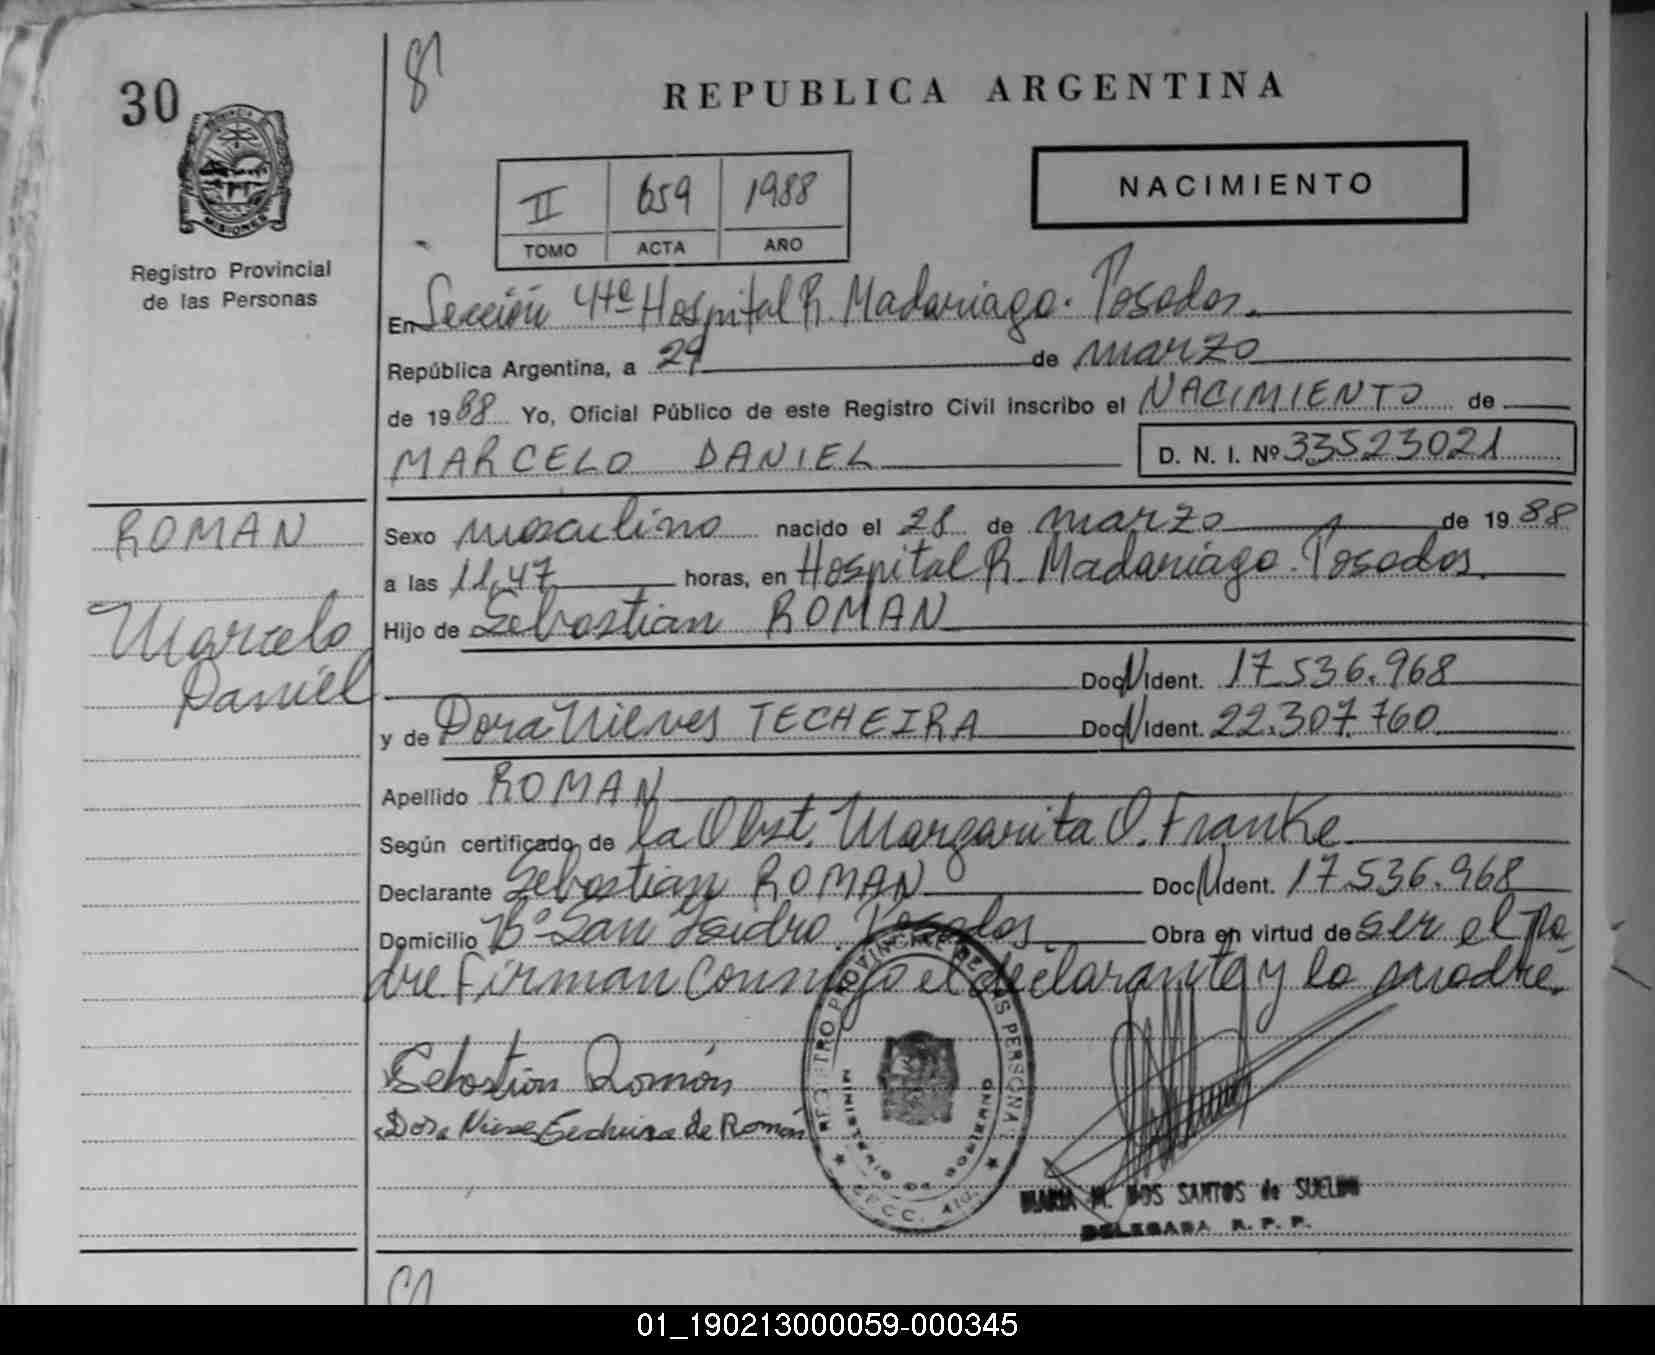 30
REPUBLICA ARGENTINA
II 659 1988
TOMO ACTA AÑO
NACIMIENTO
MISIONES
Registro Provincial
de las Personas
En Sección 4ta Hospital R. Madariaga. Posadas.
República Argentina, a 29 de marzo
de 1988 Yo, Oficial Público de este Registro Civil inscribo el NACIMIENTO de
MARCELO DANIEL D. N. I. Nº 33523021
ROMAN
Marcelo
Daniel
Sexo masculino nacido el 28 de marzo de 1988
a las 11,47 horas, en Hospital R. Madariaga. Posadas.
Hijo de Sebastian ROMAN
Doc N Ident. 17.536.968
y de Dora Nieves TECHEIRA Doc N Ident. 22.307.760
Apellido ROMAN
Según certificado de la Obst. Margarita O. Franke
Declarante Sebastian ROMAN Doc N Ident. 17.536.968
Domicilio Bº San Isidro. Posadas Obra en virtud de ser el pa-
dre Firman conmigo el declarante y la madre.
REGISTRO PROVINCIAL DE LAS PERSONAS
MINISTERIO DE GOBIERNO
Sebastian Román
Dora de Román
MARIA M. DOS SANTOS de
DELEGADA R. P. P.
01_190213000059-000345